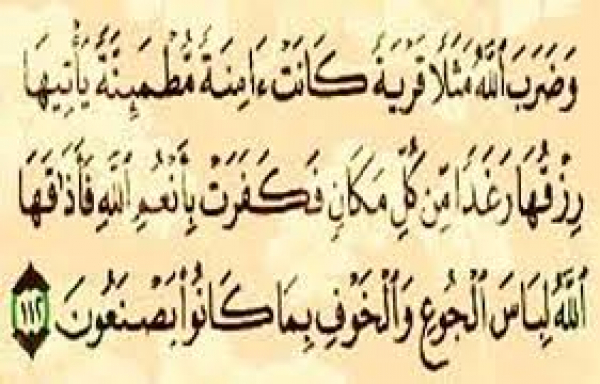 وَضَرَبَ ٱللَّهُ مَثَلًا قَرْيَةً كَانَتْ ءَامِنَةً مُّطْمَئِنَّةً يَأْتِيهَا
رِزْقُهَا رَغَدًا مِّن كُلِّ مَكَانٍ فَكَفَرَتْ بِأَنْعُمِ ٱللَّهِ فَأَذَاقَهَا
ٱللَّهُ لِبَاسَ ٱلْجُوعِ وَٱلْخَوْفِ بِمَا كَانُوا۟ يَصْنَعُونَ ١١٢